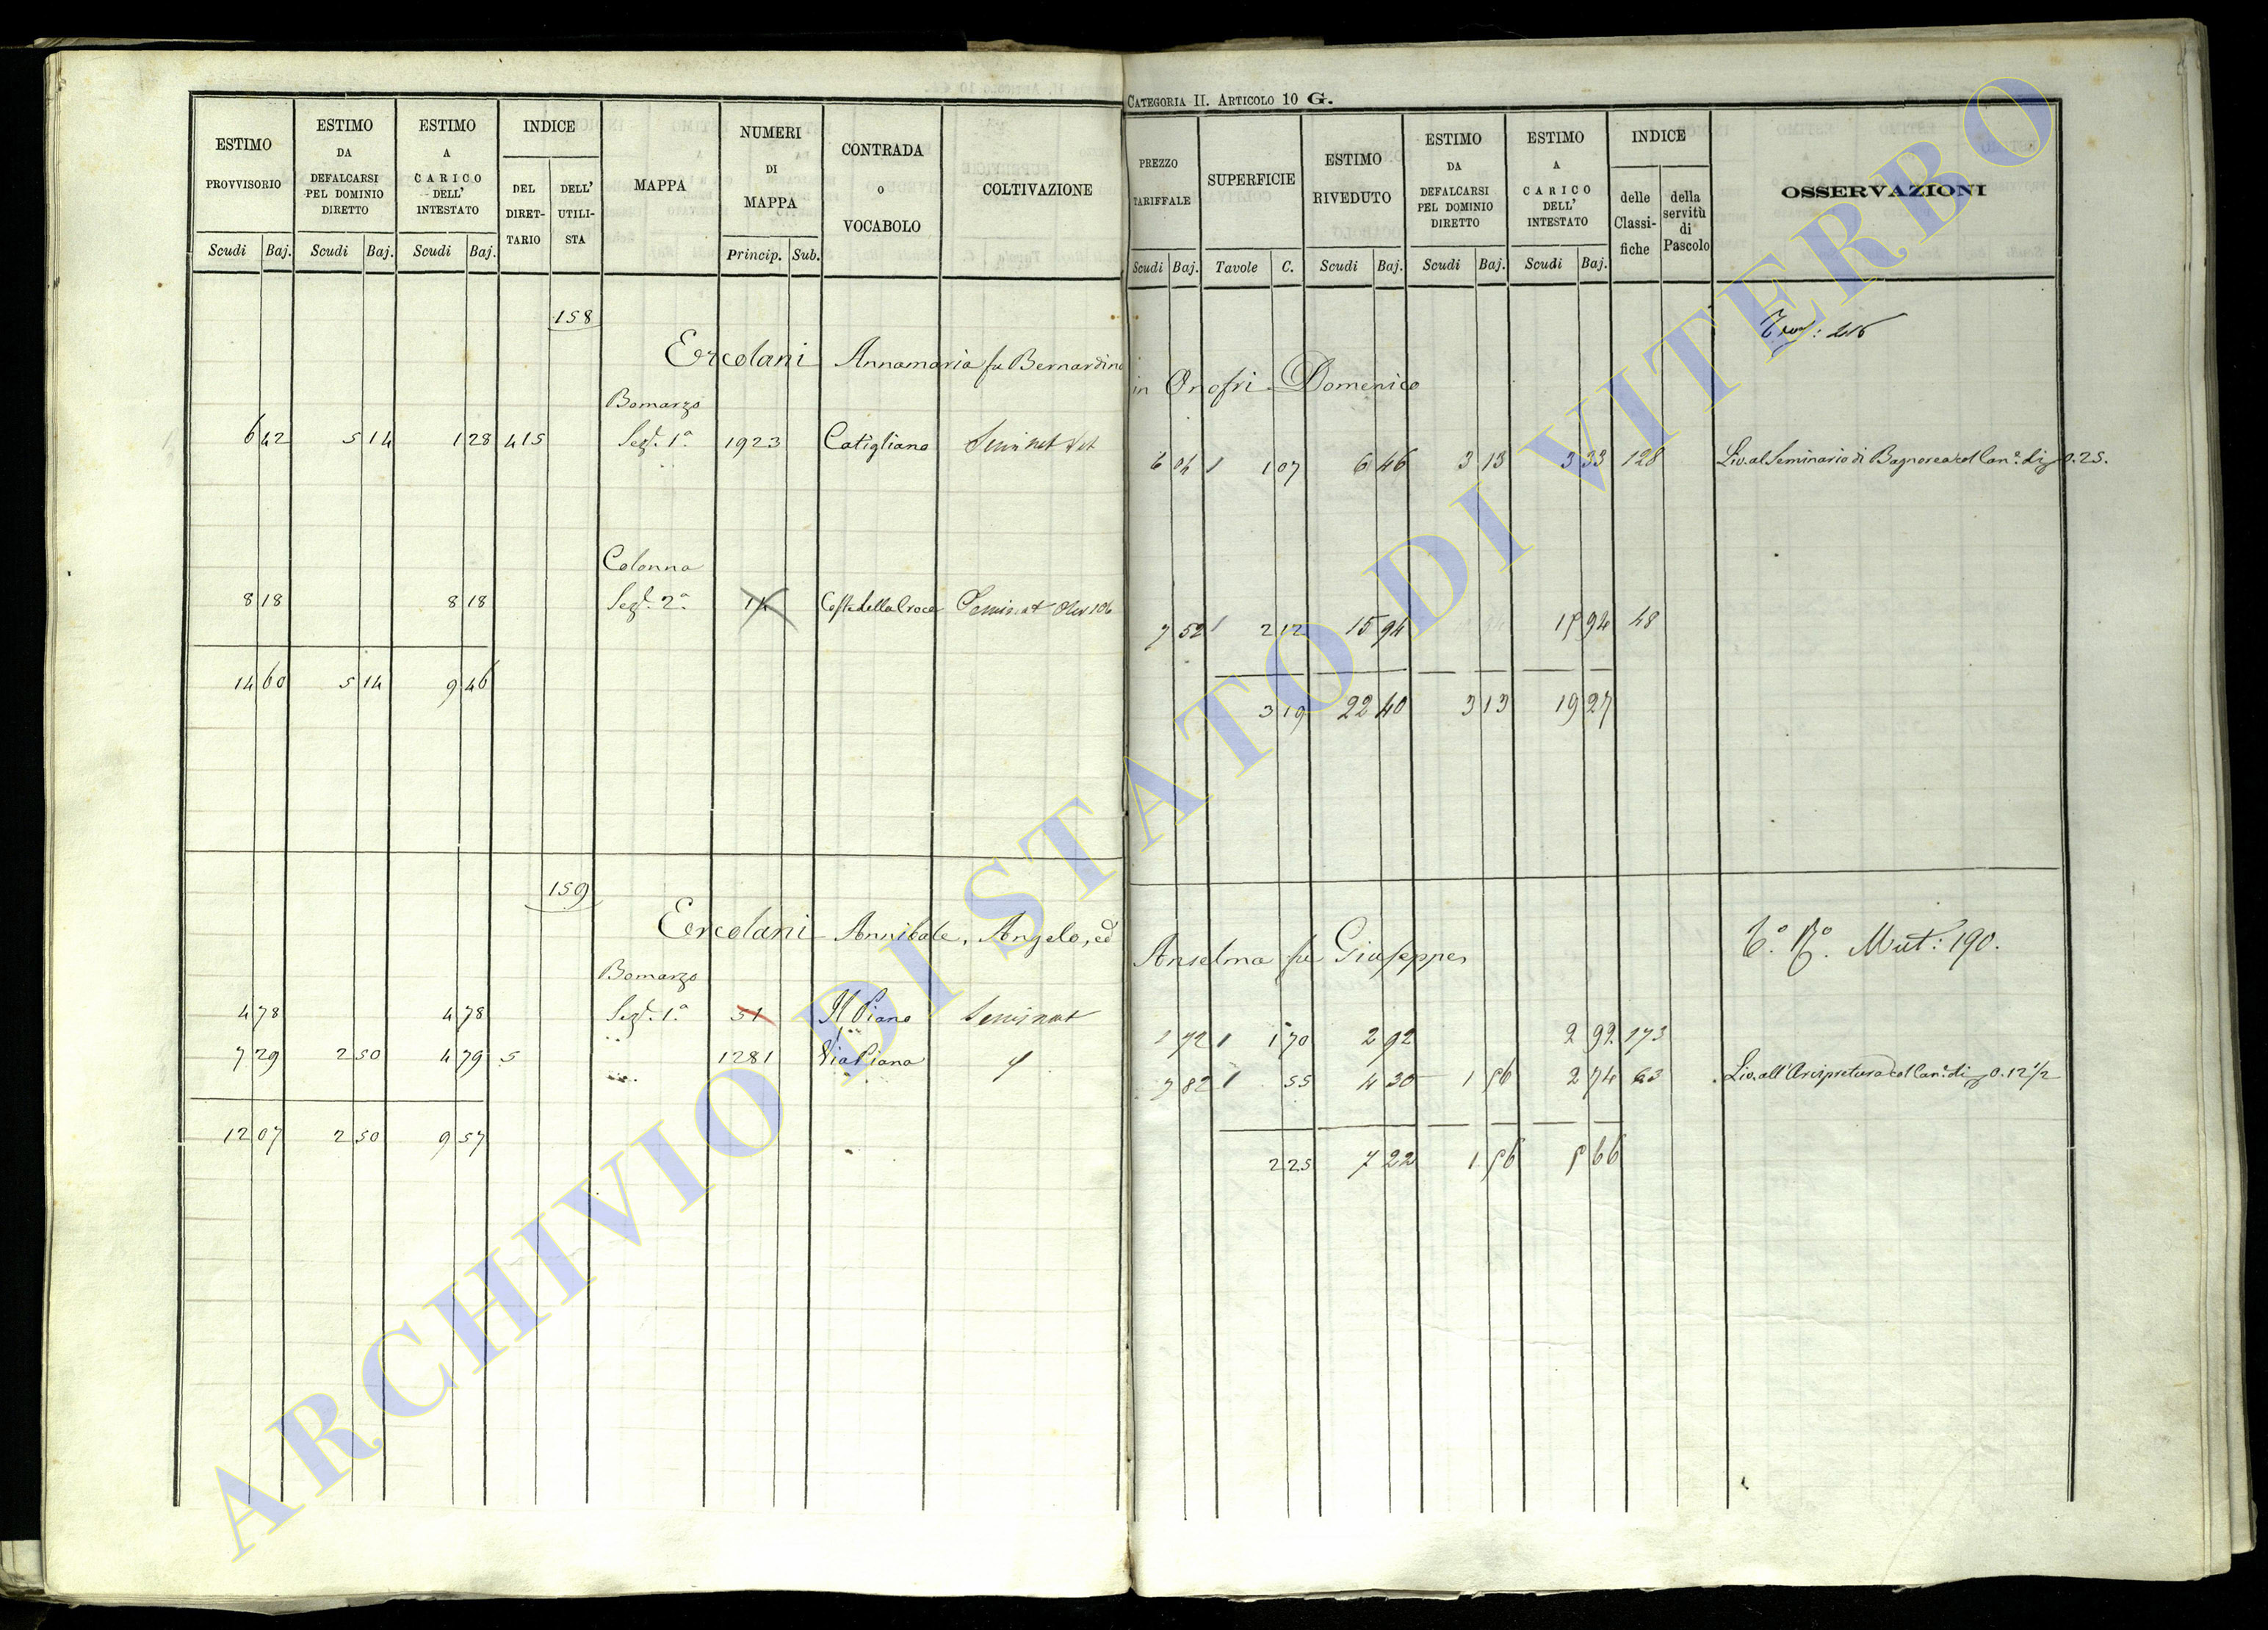 CATEGORIA II. ARTICOLO 10 G.
ESTIMO PROVVISORIO | ESTIMO DA DEFALCARSI PEL DOMINIO DIRETTO | ESTIMO A CARICO DELL' INTESTATO | INDICE | MAPPA | NUMERI DI MAPPA | CONTRADA O VOCABOLO | COLTIVAZIONE | PREZZO TARIFFALE | SUPERFICIE | ESTIMO RIVEDUTO | ESTIMO DA DEFALCARSI PEL DOMINIO DIRETTO | ESTIMO A CARICO DELL' INTESTATO | INDICE | OSSERVAZIONI
DEL DIRETTARIO | DELL' UTILISTA | delle Classifiche | della servitù di Pascolo
Scudi | Baj. | Scudi | Baj. | Scudi | Baj. | Princip. | Sub. | Scudi | Baj. | Tavole | C. | Scudi | Baj. | Scudi | Baj. | Scudi | Baj.
158
Ercolani Annamaria fu Bernardino in Onofri Domenico
Bomarzo
6 42 | 5 14 | 1 28 | 415 | Sez. 1a | 1923 | Catigliano | 6 04 | 1 07 | 6 46 | 3 13 | 3 33 | 128 | Liv. al Seminario di Bagnorea col Can. di 0.25.
Colonna
8 18 | 8 18 | Sez. 2a | 14 | Costa della Croce | 7 52 | 2 12 | 15 94 | 15 94 | 48
14 60 | 5 14 | 9 46 | 3 19 | 22 40 | 3 13 | 19 27
159
Ercolani Annibale, Angelo, ed Anselma fu Giuseppe
Mut: 190.
Bomarzo
4 78 | 4 78 | Sez. 1a | 51 | Il Piano | Seminat | 1 72 | 1 70 | 2 92 | 2 92 | 173
7 29 | 2 50 | 4 79 | 5 | 1281 | Via Piana | 7 82 | 55 | 4 30 | 1 56 | 2 74 | 63 | Liv. all'Arcipretura col Can. di 0.12 1/2
12 07 | 2 50 | 9 57 | 2 25 | 7 22 | 1 56 | 5 66
ARCHIVIO DI STATO DI VITERBO